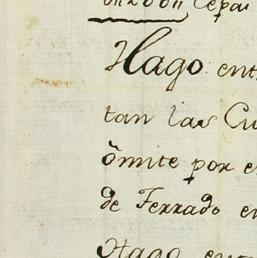 Hago ent
tan las Cu
ômite por e
de Ferrado e
Hago ent